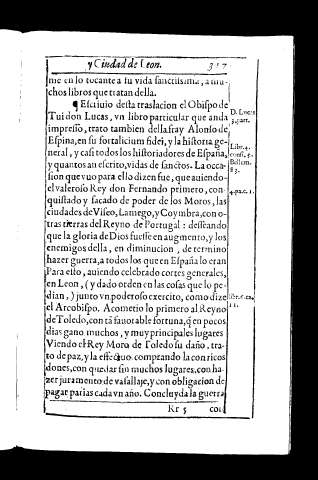 y Ciudad de Leon. 317
me en lo tocante a su vida sanctissima, a mu-
chos libros que tratan della.
¶ Escriuio desta traslacion el Obispo de
Tui don Lucas, vn libro particular que anda
impresso, trato tambien della fray Alonso de
Espina, en su fortalicium fidei, y la historia ge-
neral, y casi todos los historiadores de España,
y quantos an escrito, vidas de sanctos. La occa-
sion que vuo para ello dizen fue, que auiendo-
el valeroso Rey don Fernando primero, con-
quistado y sacado de poder de los Moros, las
ciudades de Viseo, Lamego, y Coymbra, con o-
tras tierras del Reyno de Portugal: desseando
que la gloria de Dios fuesse en augmento, y los
enemigos della, en diminucion, de termino
hazer guerra, a todos los que en España lo eran
Para ello, auiendo celebrado cortes generales,
en Leon, (y dado orden en las cosas que lo pe-
dian,) junto vn poderoso exercito, como dize
el Arcobispo. Acometio lo primero al Reyno
de Toledo, con tā fauorable fortuna, q̄ en pocos
dias gano muchos, y muy principales lugares
Viendo el Rey Moro de Toledo su daño, tra-
to de paz, y la effectuo. comprando la con ricos
dones, con quedar sin muchos lugares, con ha-
zer juramento de vasallaje, y con obligacion de
pagar parias cada vn año. Concluyda la guerra
Rr 5 con
D. Lucas
3. part.
Libr. 4.
consi. 9.
Bellum.
83.
4. pa. c. 1.
libr. 6. ca.